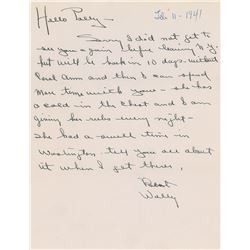 Hello Patsy - Feb 11 - 1941
Sorry I did not get to
see you again before leaving N.Y.
but will be back in 10 days without
Carol Ann and then I can spend
more time with you - she has
a cold in the chest and I am
giving her rubs every night -
She had a swell time in
Washington tell you all about
it when I get there,
Best
Wally